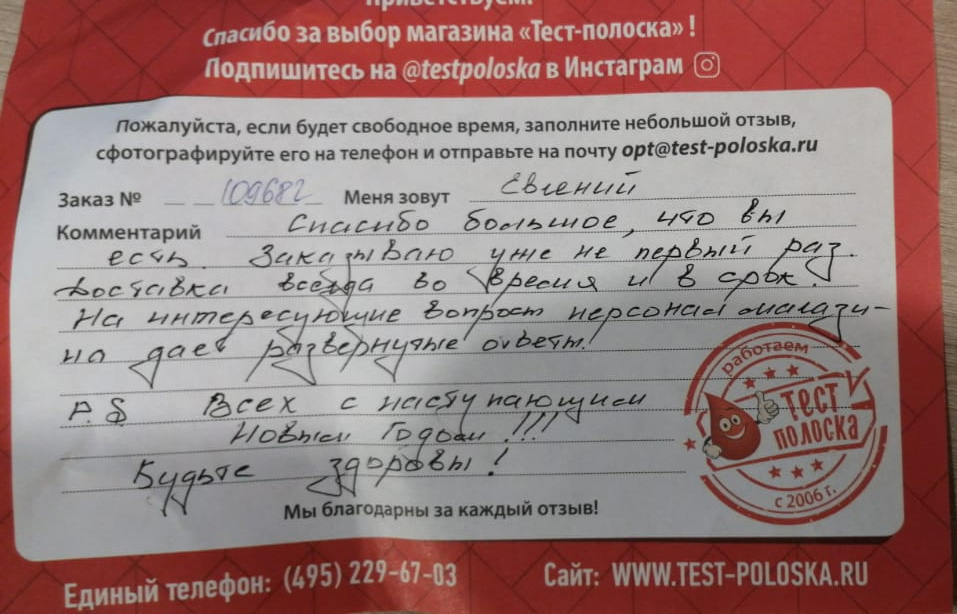 Приветствуем!
Спасибо за выбор магазина «Тест-полоска» !
Подпишитесь на @testpoloska в Инстаграм
Пожалуйста, если будет свободное время, заполните небольшой отзыв,
сфотографируйте его на телефон и отправьте на почту opt@test-poloska.ru
Заказ № 109682 Меня зовут Евгений
Комментарий Спасибо большое, что вы
есть. Заказываю уже не первый раз.
Доставка всегда во время и в срок.
На интересующие вопросы персонал магази-
на дает развернутые ответы!
P.S Всех с наступающим
Новым Годом !!!
Будьте здоровы !
работаем
ТЕСТ
ПОЛОСКА
с 2006 г.
Мы благодарны за каждый отзыв!
Единый телефон: (495) 229-67-03 Сайт: WWW.TEST-POLOSKA.RU